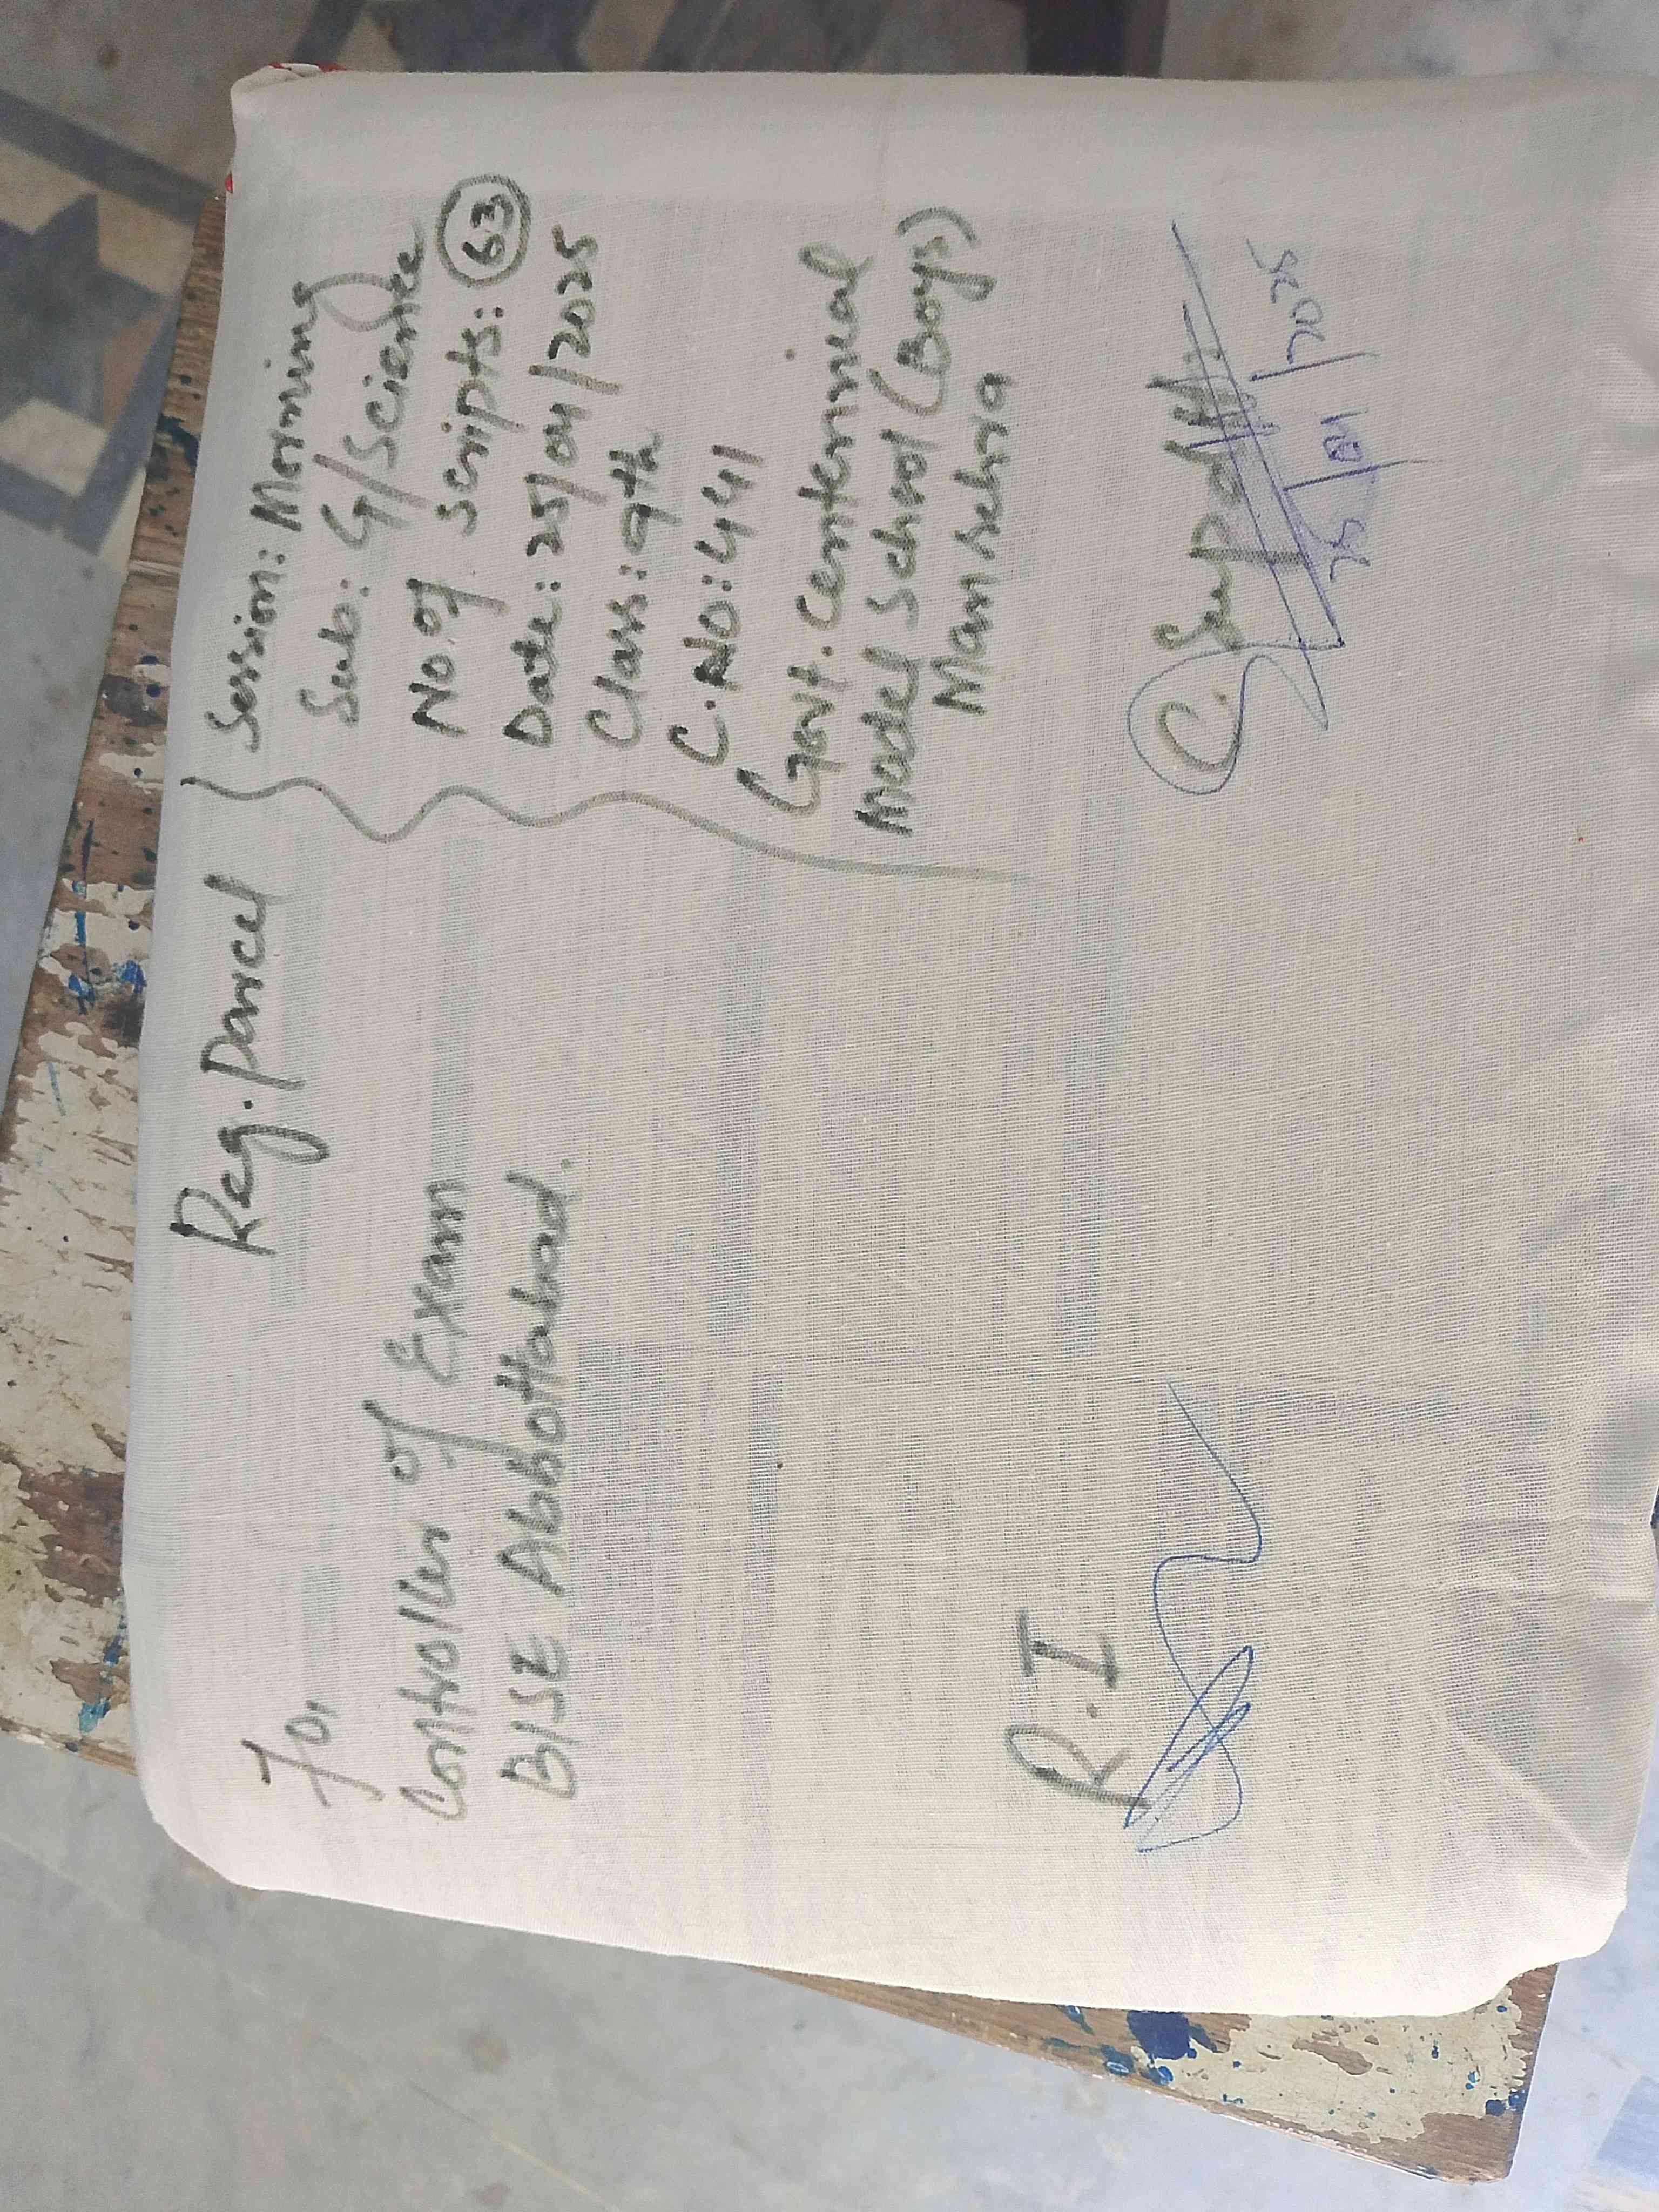 Reg. Parcel
For
Controller of Exam
BISE Abbottabad.
Session: Morning
Sub: G/Science
No. of Scripts: 63
Date: 25/04/2025
Class: 9th
C. No: 441
(Govt. Centennial
Model School (Boys)
Mansehra
R. I
C. Supdtt:
25/04/2025